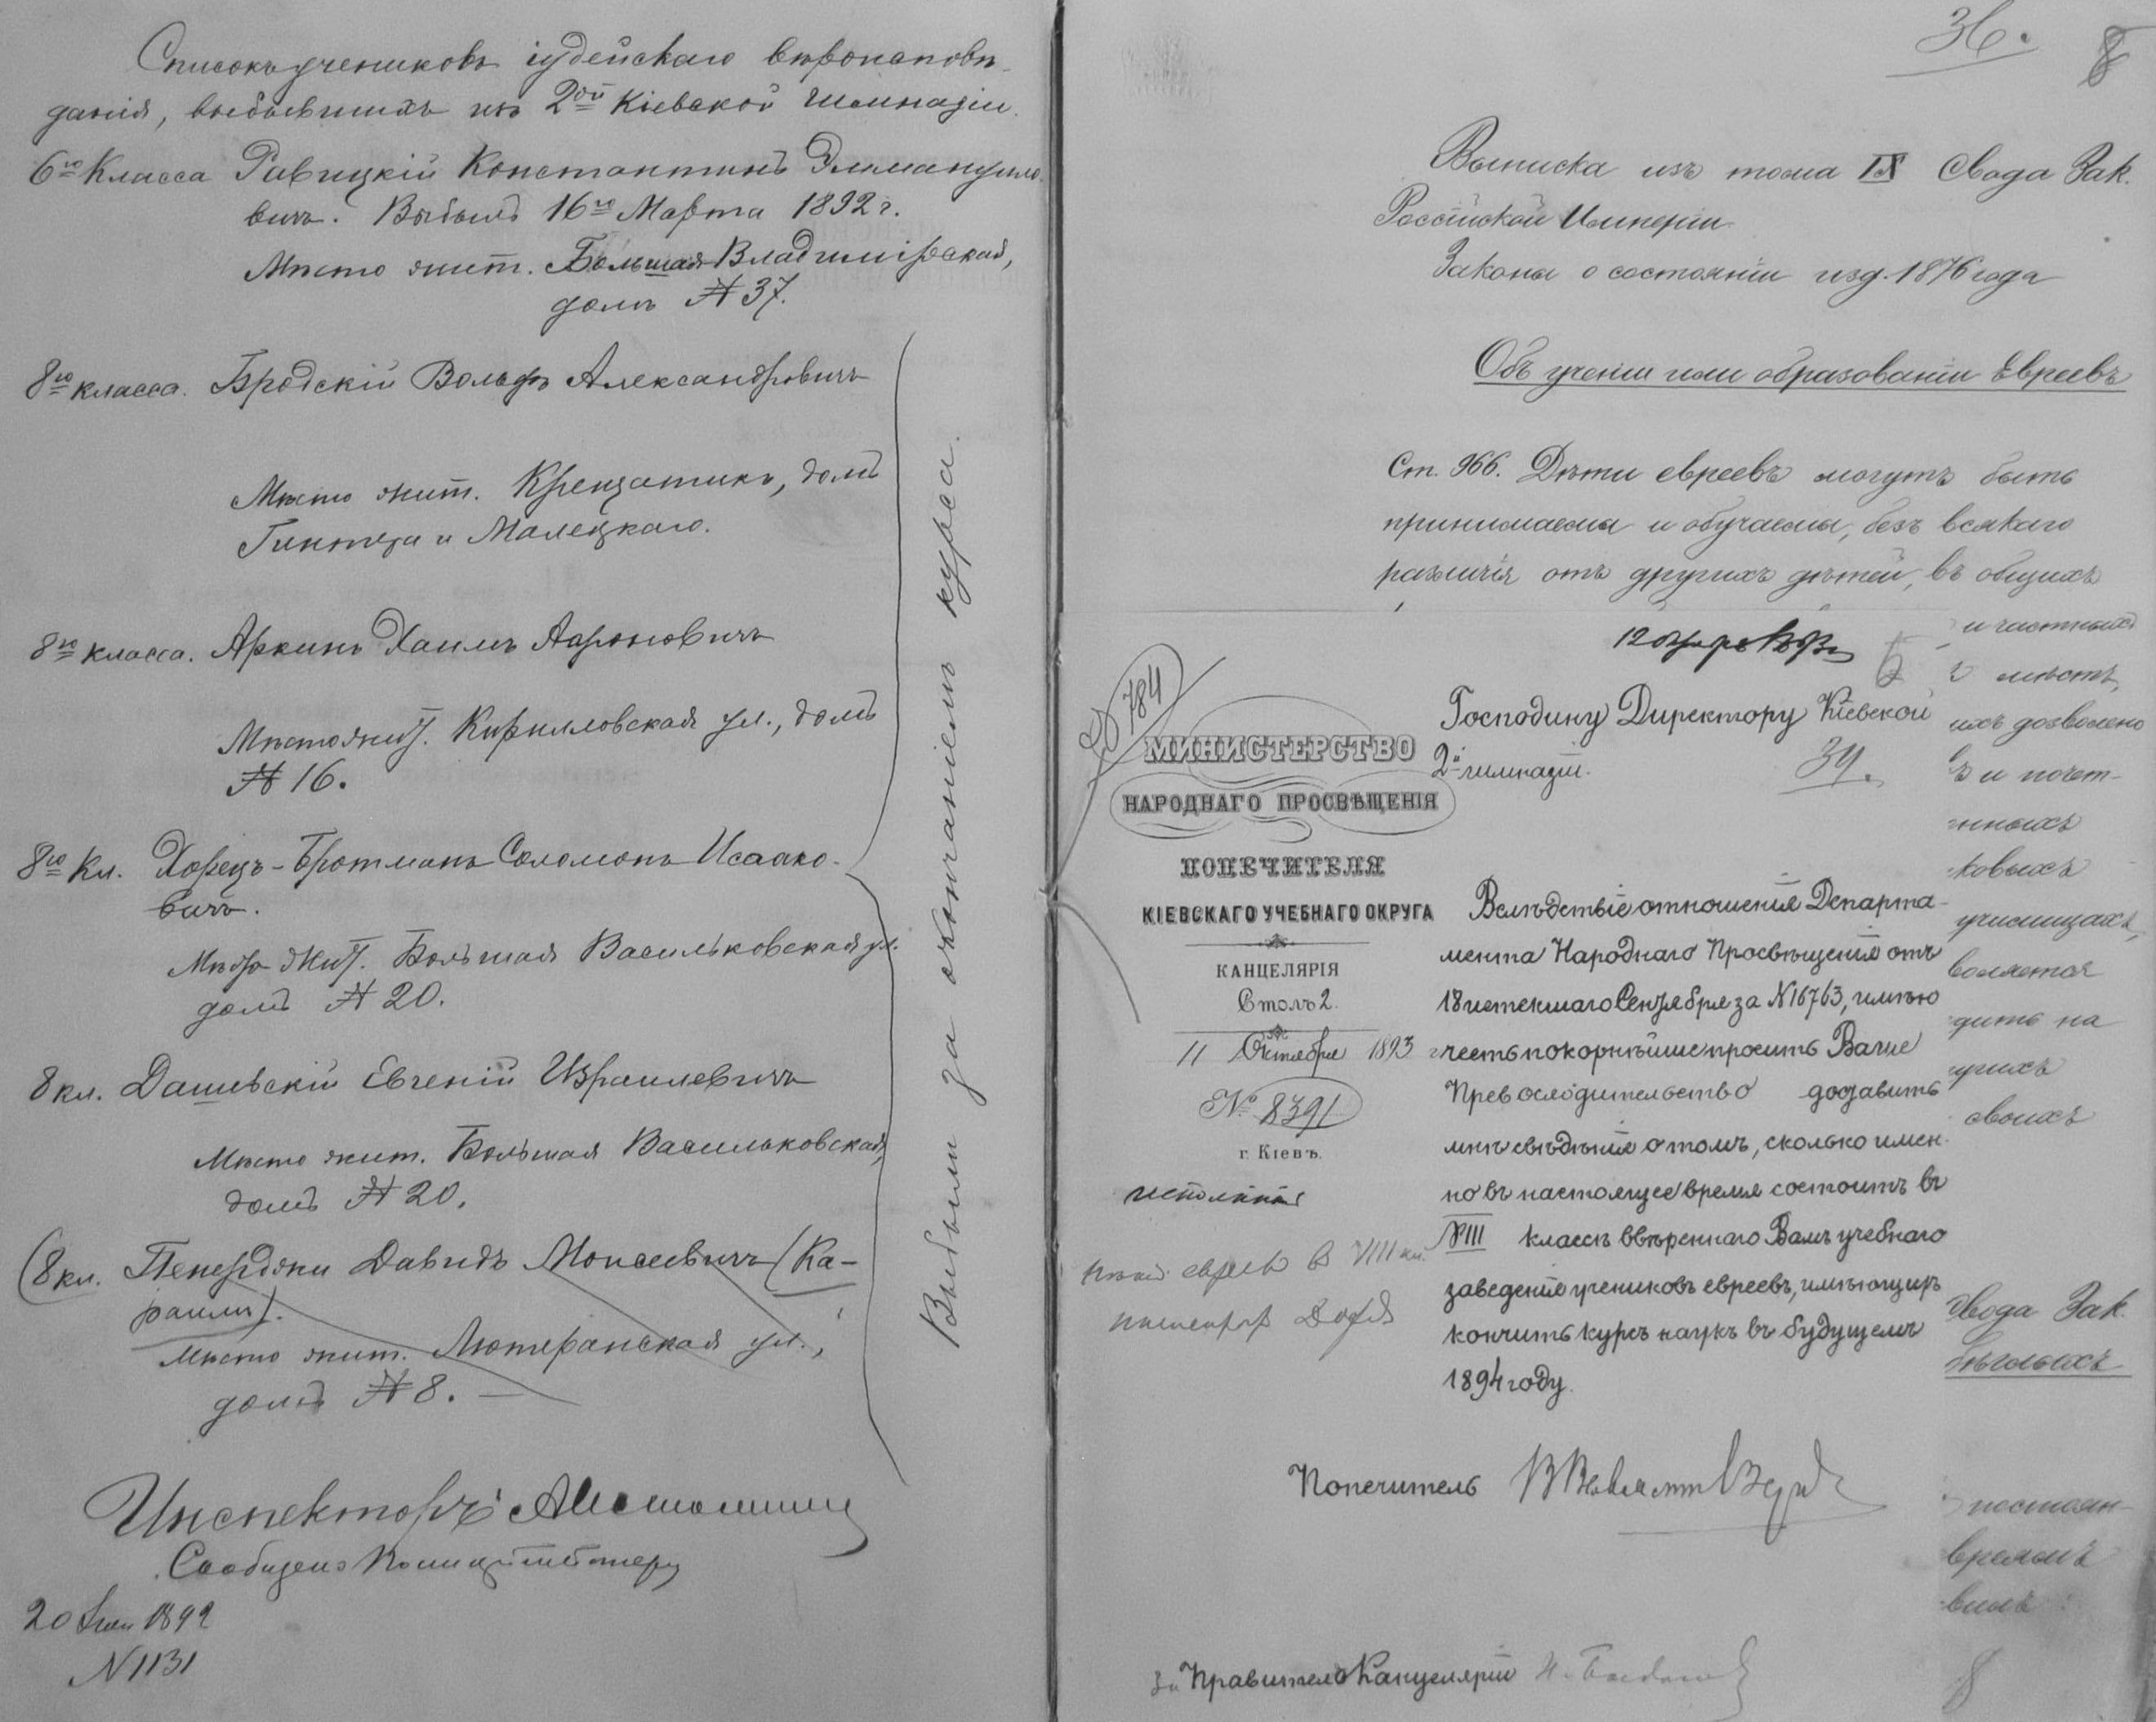 Списокъ учениковъ іудейскаго вѣроисповѣ-
данія, выбывшихъ изъ 2ой Кіевской Гимназіи.
6го Класса Равицкій Константинъ Эммануило-
вичъ. Выбылъ 16го Марта 1892 г.
Мѣсто жит. Большая Владимірская,
домъ № 37.
8го класса. Бродскій Вольфъ Александровичъ
Мѣсто жит. Крещатикъ, домъ
и Малецкаго.
8го класса. Аркинъ Хаимъ Аароновичъ
Мѣсто жит. Кирилловская ул., домъ
№ 16.
8го Кл. Хорецъ-Бротманъ Соломонъ Исаако-
вичъ.
Мѣсто жит. Большая Васильковская ул.
домъ № 20.
8 кл. Дашевскій Евгеній Израилевичъ
Мѣсто жит. Большая Васильковская,
домъ № 20.
(8 кл. Пенерджи Давидъ Моисеевичъ (Ка-
раимъ).
Мѣсто жит. Лютеранская ул.,
домъ № 8. —
Выбыли за окончаніемъ курса.
Инспекторъ
Сообщено
20 1892
N 1131
36. 8
Выписка изъ тома IX Свода Зак.
Россійской Имперіи
Законы о состояніи изд. 1876 года
Объ ученіи или образованіи Евреевъ
Ст. 966. Дѣти евреевъ могутъ быть
принимаемы и обучаемы, безъ всякаго
различія отъ другихъ дѣтей, въ общихъ
и частныхъ
мѣстъ,
ихъ дозволено
ъ и почет-
нныхъ
ковыхъ
училищахъ,
воляется
дить на
угихъ
своихъ
Свода Зак.
бѣглыхъ
постоян-
время
784
12
МИНИСТЕРСТВО
НАРОДНАГО ПРОСВѢЩЕНІЯ
ПОПЕЧИТЕЛЯ
КІЕВСКАГО УЧЕБНАГО ОКРУГА
КАНЦЕЛЯРІЯ
Столъ 2.
11 Октября 1893 г.
№ 8391
г. Кіевъ.
Господину Директору Кіевской
2й гимназіи.
34.
Вслѣдствіе отношенія Департа-
мента Народнаго Просвѣщенія отъ
18 истекшаго Сентября за N 16763, имѣю
честь покорнѣйше просить Ваше
Превосходительство доставить
мнѣ свѣдѣніе о томъ, сколько имен-
но въ настоящее время состоитъ въ
VIII классѣ ввѣреннаго Вамъ учебнаго
заведенія учениковъ евреевъ, имѣющихъ
кончить курсъ наукъ въ будущемъ
1894 году.
евреевъ в VIII кл.
Попечитель
За Правителя Канцеляріи
8